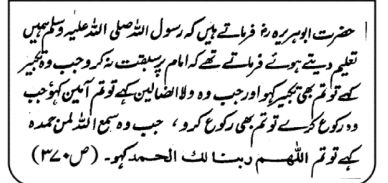 حضرت ابوہریرہ رضؓ فرماتے ہیں کہ رسول اللہ صلی اللہ علیہ وسلم ہمیں
تعلیم دیتے ہوئے فرماتے تھے کہ امام پر سبقت نہ کرو جب وہ تکبیر
کہے تو تم بھی تکبیر کہو اور جب وہ ولا الضالین کہے تو تم آمین کہو جب
وہ رکوع کرے تو تم بھی رکوع کرو، جب وہ سمع اللہ لمن حمدہ
کہے تو تم اللھم ربنا لک الحمد کہو۔ (ص ۳۷۰)